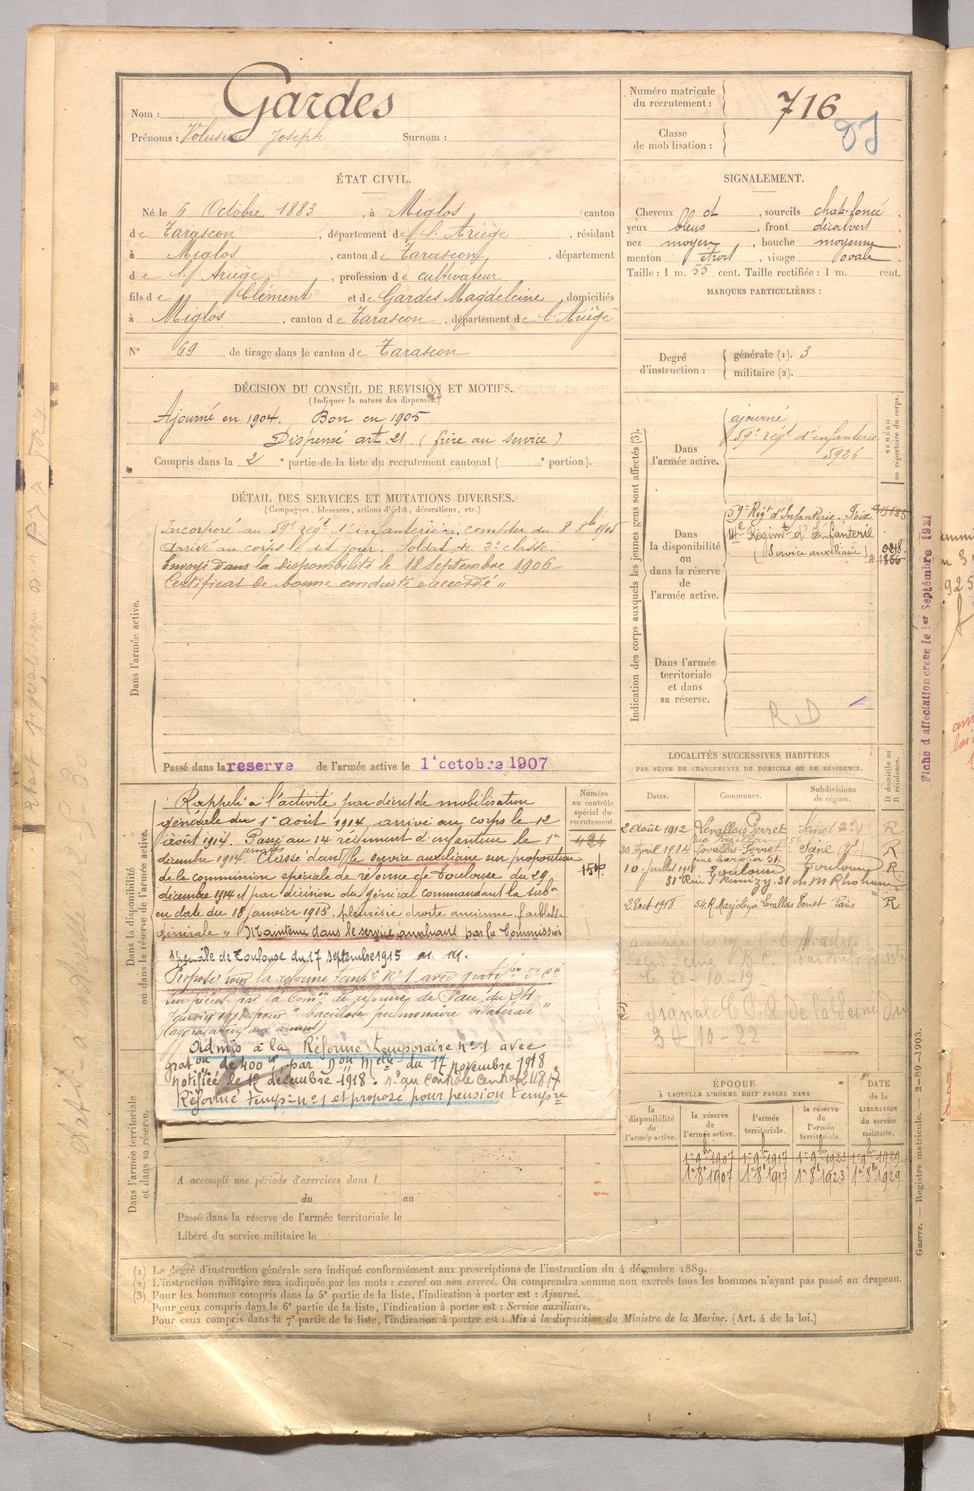 Nom : Gardes
Prénoms : Volusien Joseph Surnom :
Numéro matricule du recrutement : 716
Classe de mobilisation :
ÉTAT CIVIL.
Né le 6 Octobre 1883, à Miglos canton
de Tarascon, département de l'Ariège, résidant
à Miglos, canton de Tarascon, département
de l'Ariège, profession de cultivateur
fils de Clément et de Gardes Magdeleine, domiciliés
à Miglos, canton de Tarascon, département de l'Ariège
N° 69 de tirage dans le canton de Tarascon
SIGNALEMENT.
Cheveux ct, sourcils chat-foncé,
yeux bleus, front découvert
nez moyen, bouche moyenne
menton étroit, visage ovale
Taille : 1 m. 55 cent. Taille rectifiée : 1 m. cent.
MARQUES PARTICULIÈRES :
Degré d'instruction : générale (1). 3
militaire (2).
DÉCISION DU CONSEIL DE REVISION ET MOTIFS.
(Indiquer la nature des dispenses.)
Ajourné en 1904. Bon en 1905
Dispensé art. 21. (frère au service)
Compris dans la 2e partie de la liste du recrutement cantonal ( e portion).
DÉTAIL DES SERVICES ET MUTATIONS DIVERSES.
(Campagnes, blessures, actions d'éclat, décorations, etc.)
Dans l'armée active.
Incorporé au 59e régt d'infanterie à compter du 8 8bre 1905
Arrivé au corps le dit jour. Soldat de 2e classe.
Envoyé dans la disponibilité le 18 Septembre 1906
Certificat de bonne conduite accordé
Passé dans la reserve de l'armée active le 1er octobre 1907
Indication des corps auxquels les jeunes gens sont affectés (3).
NUMÉRO au répertoire du corps.
Dans l'armée active.
ajourné
59e régt d'infanterie
5926
Dans la disponibilité ou dans la réserve de l'armée active.
59e Régt d'Infanterie Foix
14e Régiment d'Infanterie
(Service auxiliaire)
Dans l'armée territoriale et dans sa réserve.
R D
Fiche d'affectation créée le 1er Septembre 1921
Dans la disponibilité ou dans la réserve de l'armée active.
Numéro au contrôle spécial du recrutement.
Rappelé à l'activité par décret de mobilisation
générale du 1er août 1914, arrivé au corps le 12
août 1914. Passé au 14e régiment d'infanterie le 1er
décembre 1914. Classé dans le service auxiliaire sur proposition
de la commission spéciale de réforme de Toulouse du 29
décembre 1914 et par décision du général commandant la subon
en date du 18 janvier 1915. pleurésie droite ancienne, faiblesse
générale. Maintenu dans le service auxiliaire par la Commission
spéciale de Toulouse du 17 septembre 1915
Proposé pour la réforme tempre N° 1 avec graton
sur pièces par la Comon de réforme de Pau du 24
Janvier 1918 pour bacillose pulmonaire bilatérale
Admis à la Réforme temporaire n°1 avec
graton de 400 f par Don Melle du 17 novembre 1918
notifiée le 12 décembre 1918. n° au contrôle Central
Réformé Temp. n°1 et proposé pour pension tempre
LOCALITÉS SUCCESSIVES HABITÉES
PAR SUITE DE CHANGEMENTS DE DOMICILE OU DE RÉSIDENCE.
Dates. Communes. Subdivisions de région. D domicile ou R résidence.
2 Août 1912 Levallois Perret Seine R
20 Avril 1914 Levallois-Perret Seine R
10 juillet 1918 Toulouse Toulouse R
28 oct 1918 54 R. Marjolin Levallois Perret Paris R
ÉPOQUE
À LAQUELLE L'HOMME DOIT PASSER DANS
la disponibilité de l'armée active. la réserve de l'armée active. l'armée territoriale. la réserve de l'armée territoriale.
DATE de la LIBÉRATION du service militaire.
1er 8bre 1907 1er 8bre 1917 1er 8bre 1923 1er 8bre 1929
Dans l'armée territoriale et dans sa réserve.
A accompli une période d'exercices dans l
du au
Passé dans la réserve de l'armée territoriale le
Libéré du service militaire le
Guerre. — Registre matricule. 2-89-1903.
(1) Le degré d'instruction générale sera indiqué conformément aux prescriptions de l'instruction du 4 décembre 1889.
(2) L'instruction militaire sera indiquée par les mots : exercé ou non exercé. On comprendra comme non exercés tous les hommes n'ayant pas passé au drapeau.
(3) Pour les hommes compris dans la 5e partie de la liste, l'indication à porter est : Ajourné.
Pour ceux compris dans la 6e partie de la liste, l'indication à porter est : Service auxiliaire.
Pour ceux compris dans la 7e partie de la liste, l'indication à porter est : Mis à la disposition du Ministre de la Marine. (Art. 4 de la loi.)